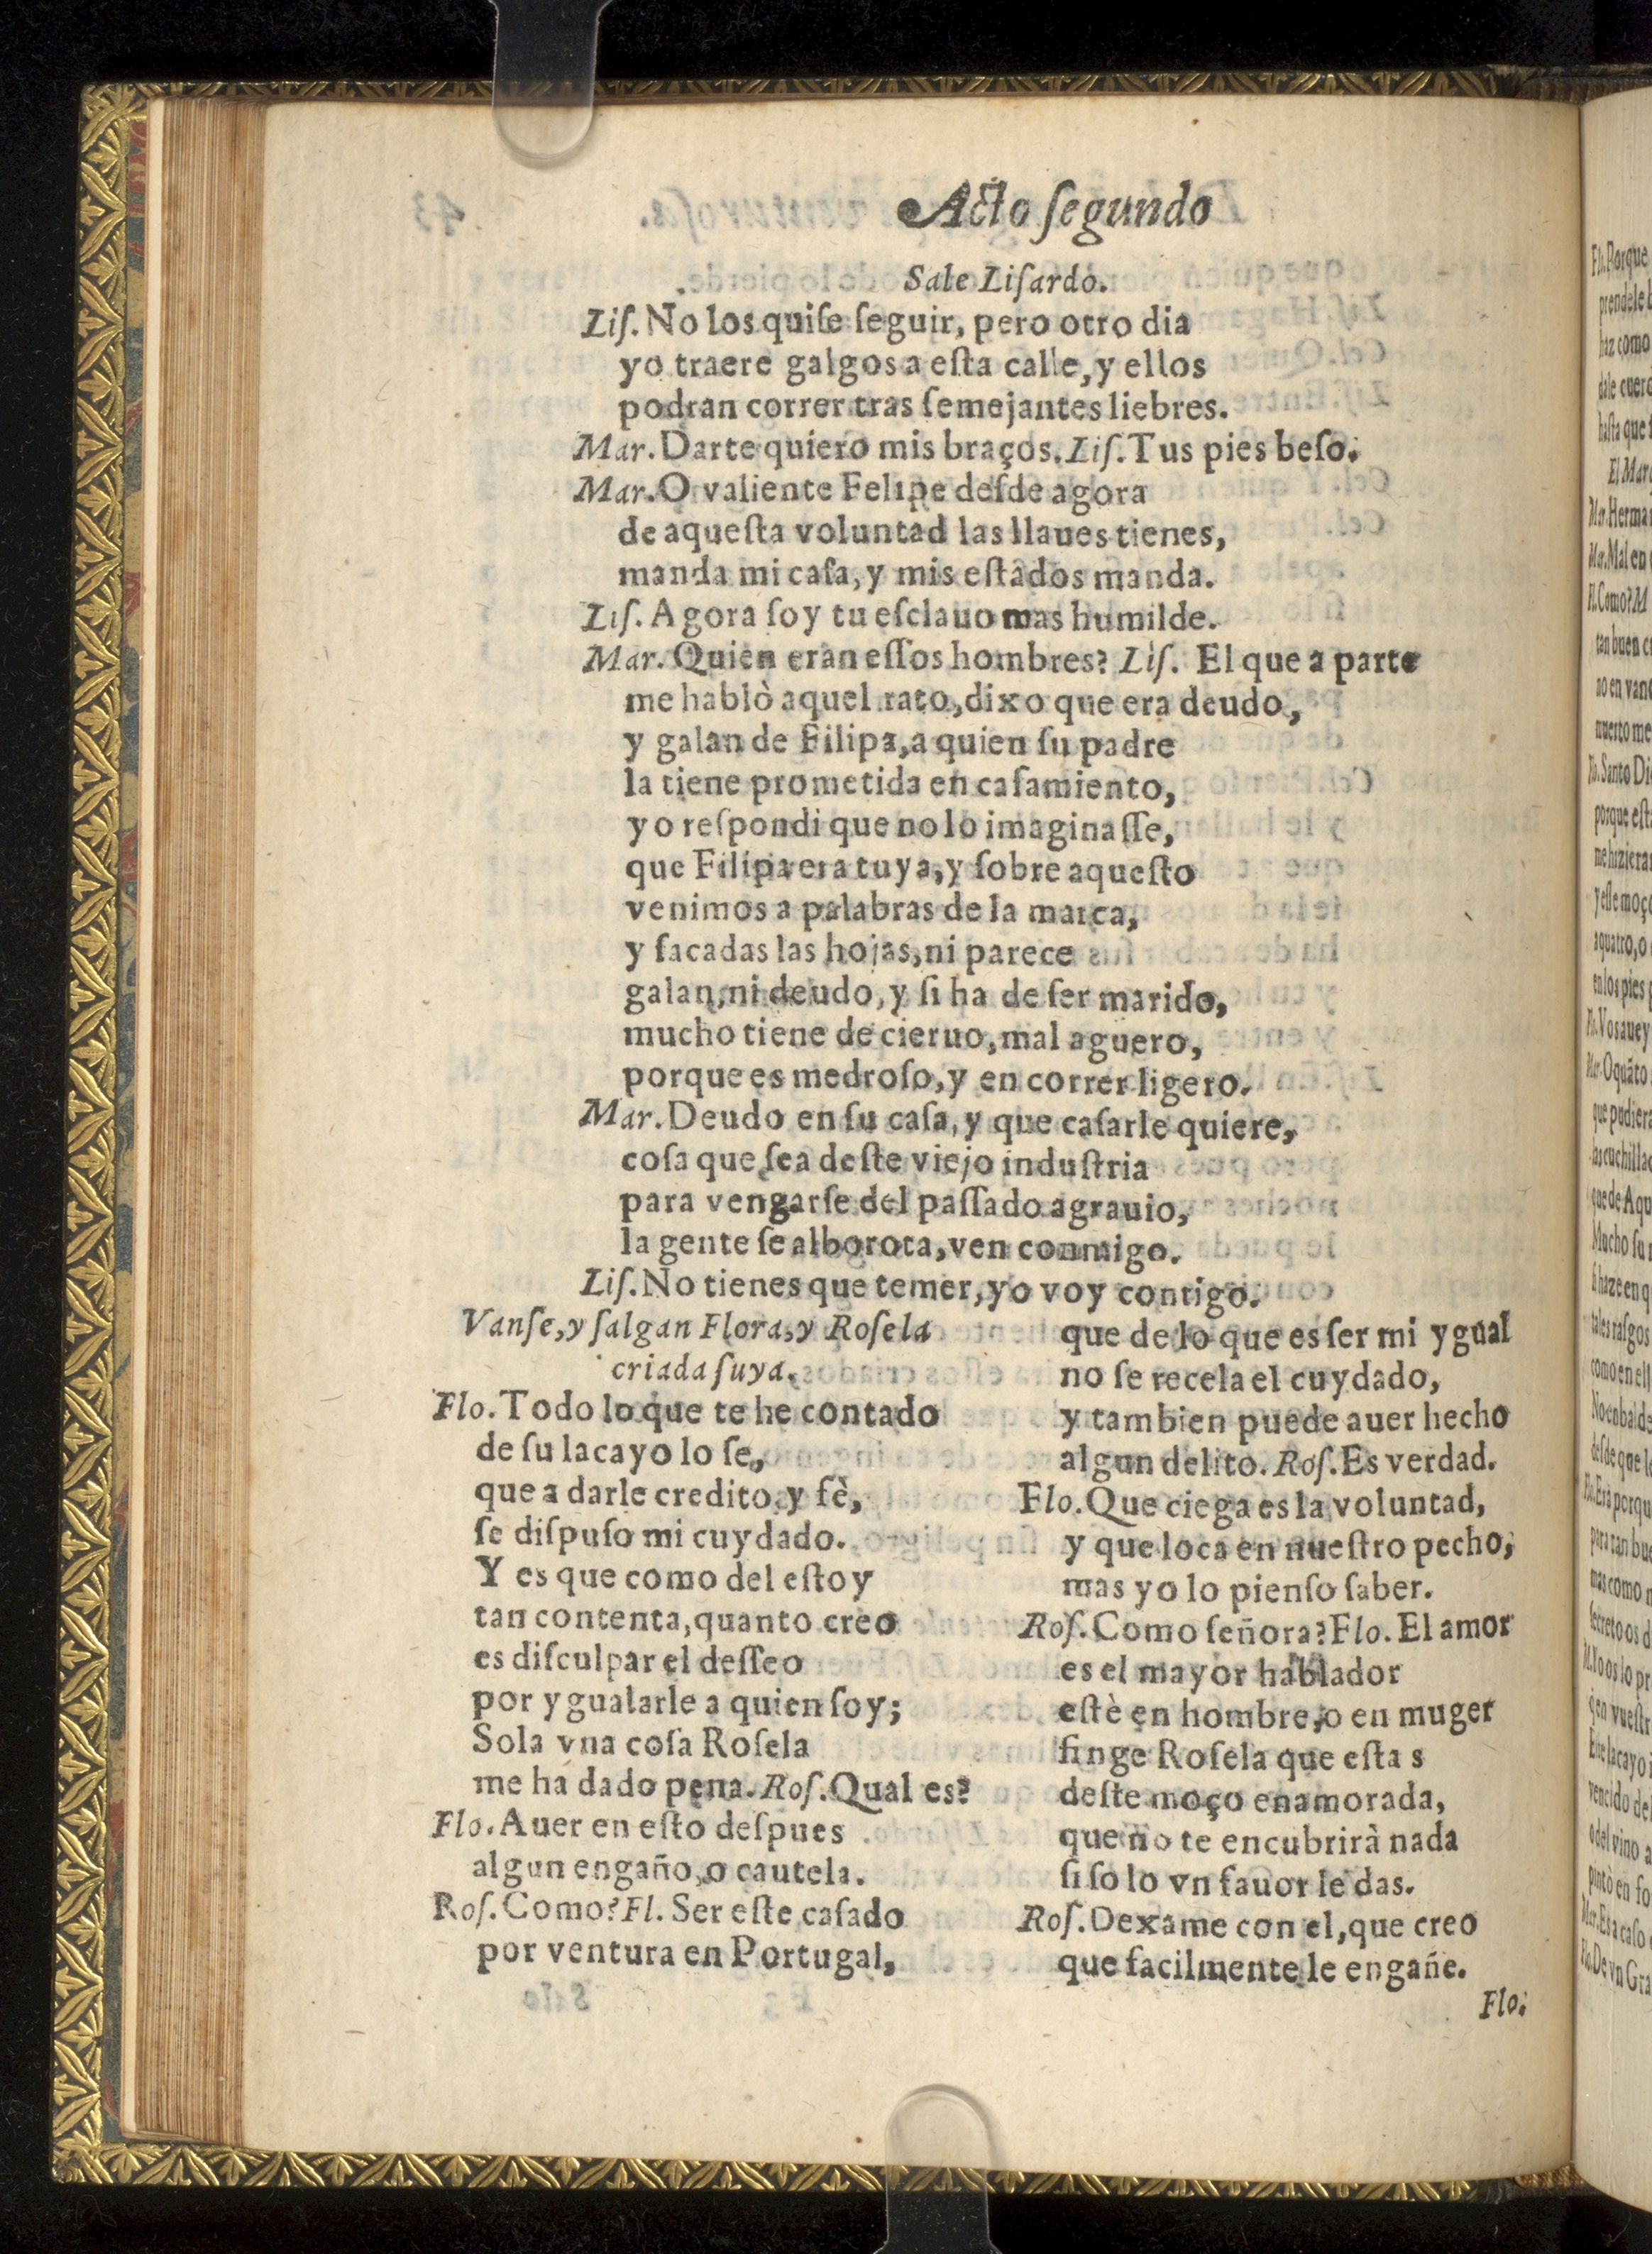 Acto ſegundo
Sale Liſardo.
Liſ. No los quiſe ſeguir, pero otro dia
yo traere galgos a eſta calle, y ellos
podran correr tras ſemejantes liebres.
Mar. Darte quiero mis braços. Liſ. Tus pies beſo.
Mar. O valiente Felipe deſde agora
de aqueſta voluntad las llaues tienes,
manda mi caſa, y mis eſtados manda.
Liſ. Agora ſoy tu eſclauo mas humilde.
Mar. Quien eran eſſos hombres? Liſ. El que a parte
me hablò aquel rato, dixo que era deudo,
y galan de Filipa, a quien ſu padre
la tiene prometida en caſamiento,
yo reſpondi que no lo imaginaſſe,
que Filipa era tuya, y ſobre aqueſto
venimos a palabras de la marca,
y ſacadas las hojas, ni parece
galan, ni deudo, y ſi ha de ſer marido,
mucho tiene de cieruo, mal aguero,
porque es medroſo, y en correr ligero.
Mar. Deudo en ſu caſa, y que caſarle quiere,
coſa que ſea deſte viejo induſtria
para vengarſe del paſſado agrauio,
la gente ſe alborota, ven conmigo.
Liſ. No tienes que temer, yo voy contigo.
Vanſe, y ſalgan Flora, y Roſela
criada ſuya.
Flo. Todo lo que te he contado
de ſu lacayo lo ſe,
que a darle credito, y fè,
ſe diſpuſo mi cuydado.
Y es que como del eſtoy
tan contenta, quanto creo
es diſculpar el deſſeo
por ygualarle a quien ſoy;
Sola vna coſa Roſela
me ha dado pena. Roſ. Qual es?
Flo. Auer en eſto deſpues
algun engaño, o cautela.
Roſ. Como? Fl. Ser eſte caſado
por ventura en Portugal,
que de lo que es ſer mi ygual
no ſe recela el cuydado,
y tambien puede auer hecho
algun delito. Roſ. Es verdad.
Flo. Que ciega es la voluntad,
y que loca en nueſtro pecho,
mas yo lo pienſo ſaber.
Roſ. Como ſeñora? Flo. El amor
es el mayor hablador
eſtè en hombre, o en muger
finge Roſela que eſta s
deſte moço enamorada,
que no te encubrirà nada
ſi ſo lo vn fauor le das.
Roſ. Dexame con el, que creo
que facilmente le engañe.
Flo.